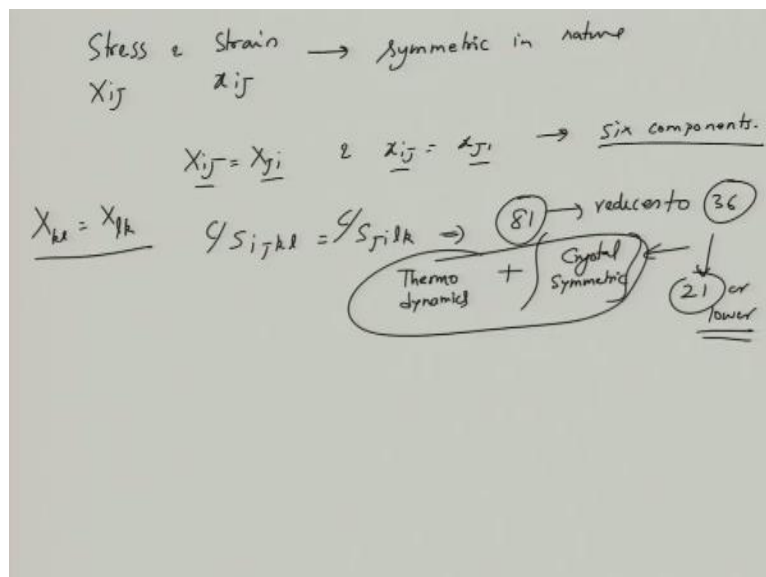 Stress & Strain → symmetric in nature
Xij xij
Xij = Xji & xij = xji → six components.
Xkl = Xlk C/Sijkl = C/Sjilk ⇒ 81 → reduces to 36
Thermo dynamics + Crystal Symmetric ← ↓
21 or lower